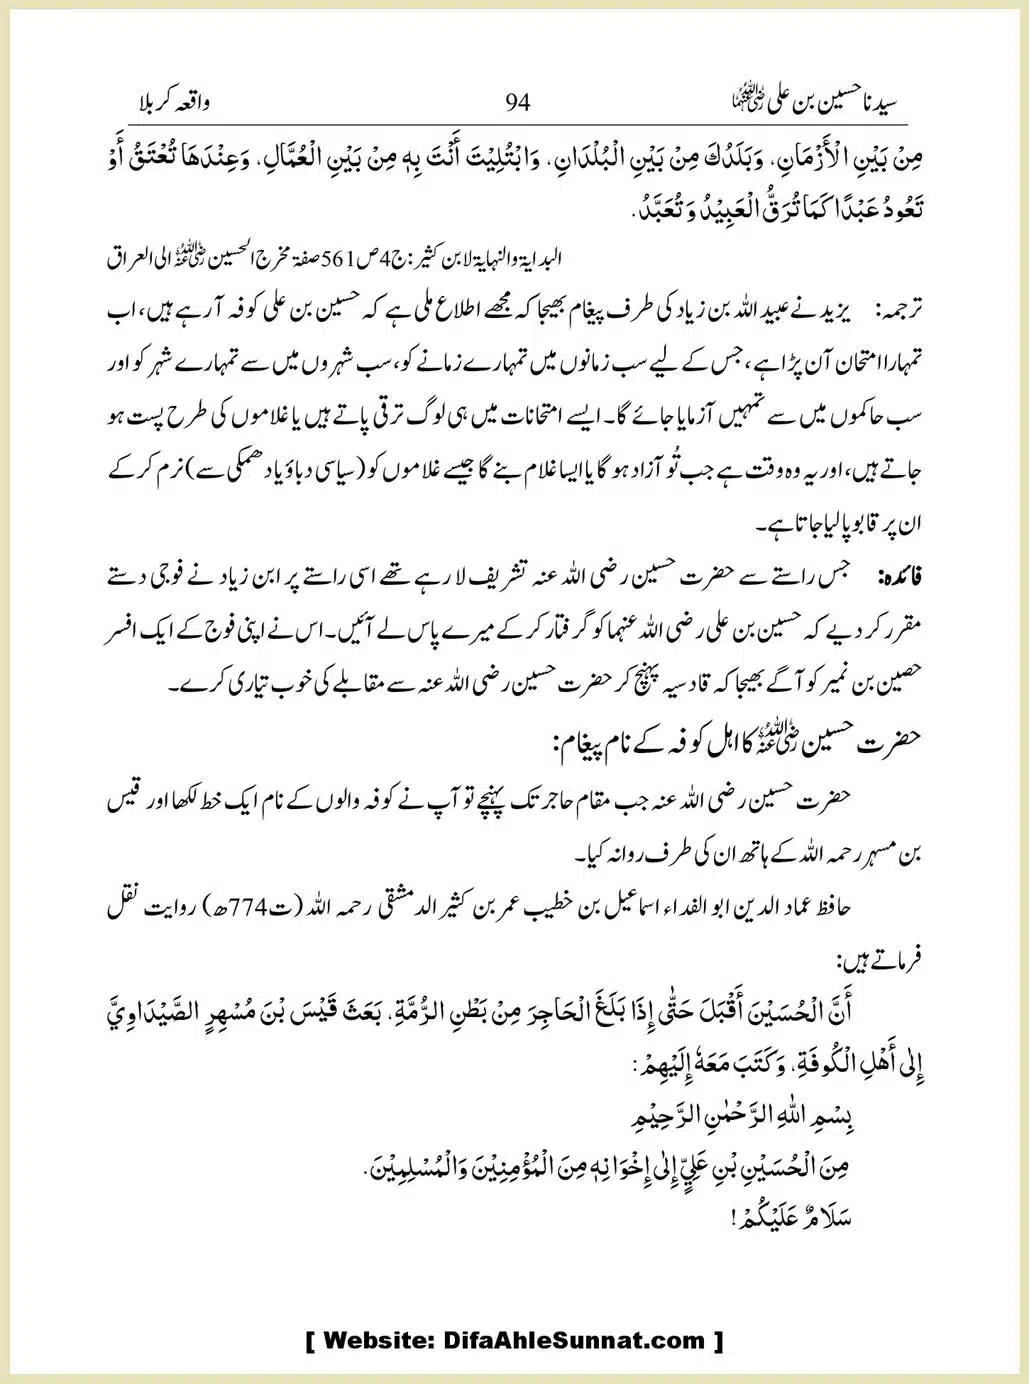 سیدنا حسین بن علی رضی اللہ عنہما 94 واقعہ کربلا
مِنْ بَيْنِ الْأَزْمَانِ، وَبَلَدُكَ مِنْ بَيْنِ الْبُلْدَانِ، وَابْتُلِيْتَ أَنْتَ بِهٖ مِنْ بَيْنِ الْعُمَّالِ، وَعِنْدَهَا تُعْتَقُ أَوْ
تَعُودُ عَبْدًا كَمَا تُرَقُّ الْعَبِيْدُ وَتُعَبَّدُ.
البدایۃ والنہایۃ لابن کثیر: ج4 ص561 صفۃ مخرج الحسین رضی اللہ عنہ الی العراق
ترجمہ: یزید نے عبید اللہ بن زیاد کی طرف پیغام بھیجا کہ مجھے اطلاع ملی ہے کہ حسین بن علی کوفہ آ رہے ہیں، اب
تمہارا امتحان آن پڑا ہے، جس کے لیے سب زمانوں میں تمہارے زمانے کو، سب شہروں میں سے تمہارے شہر کو اور
سب حاکموں میں سے تمہیں آزمایا جائے گا۔ ایسے امتحانات میں ہی لوگ ترقی پاتے ہیں یا غلاموں کی طرح پست ہو
جاتے ہیں، اور یہ وہ وقت ہے جب تُو آزاد ہو گا یا ایسا غلام بنے گا جیسے غلاموں کو (سیاسی دباؤ یا دھمکی سے) نرم کر کے
ان پر قابو پا لیا جاتا ہے۔
فائدہ: جس راستے سے حضرت حسین رضی اللہ عنہ تشریف لا رہے تھے اسی راستے پر ابن زیاد نے فوجی دستے
مقرر کر دیے کہ حسین بن علی رضی اللہ عنہما کو گرفتار کر کے میرے پاس لے آئیں۔ اس نے اپنی فوج کے ایک افسر
حصین بن نمیر کو آگے بھیجا کہ قادسیہ پہنچ کر حضرت حسین رضی اللہ عنہ سے مقابلے کی خوب تیاری کرے۔
حضرت حسین رضی اللہ عنہ کا اہل کوفہ کے نام پیغام:
حضرت حسین رضی اللہ عنہ جب مقام حاجر تک پہنچے تو آپ نے کوفہ والوں کے نام ایک خط لکھا اور قیس
بن مسہر رحمہ اللہ کے ہاتھ ان کی طرف روانہ کیا۔
حافظ عماد الدین ابو الفداء اسماعیل بن خطیب عمر بن کثیر الدمشقی رحمہ اللہ (ت774ھ) روایت نقل
فرماتے ہیں:
أَنَّ الْحُسَيْنَ أَقْبَلَ حَتّٰى إِذَا بَلَغَ الْحَاجِرَ مِنْ بَطْنِ الرُّمَّةِ، بَعَثَ قَيْسَ بْنَ مُسْهِرٍ الصَّيْدَاوِيَّ
إِلٰى أَهْلِ الْكُوفَةِ، وَكَتَبَ مَعَهٗ إِلَيْهِمْ:
بِسْمِ اللهِ الرَّحْمٰنِ الرَّحِيْمِ
مِنَ الْحُسَيْنِ بْنِ عَلِيٍّ إِلٰى إِخْوَانِهٖ مِنَ الْمُؤْمِنِيْنَ وَالْمُسْلِمِيْنَ.
سَلَامٌ عَلَيْكُمْ!
[ Website: DifaAhleSunnat.com ]